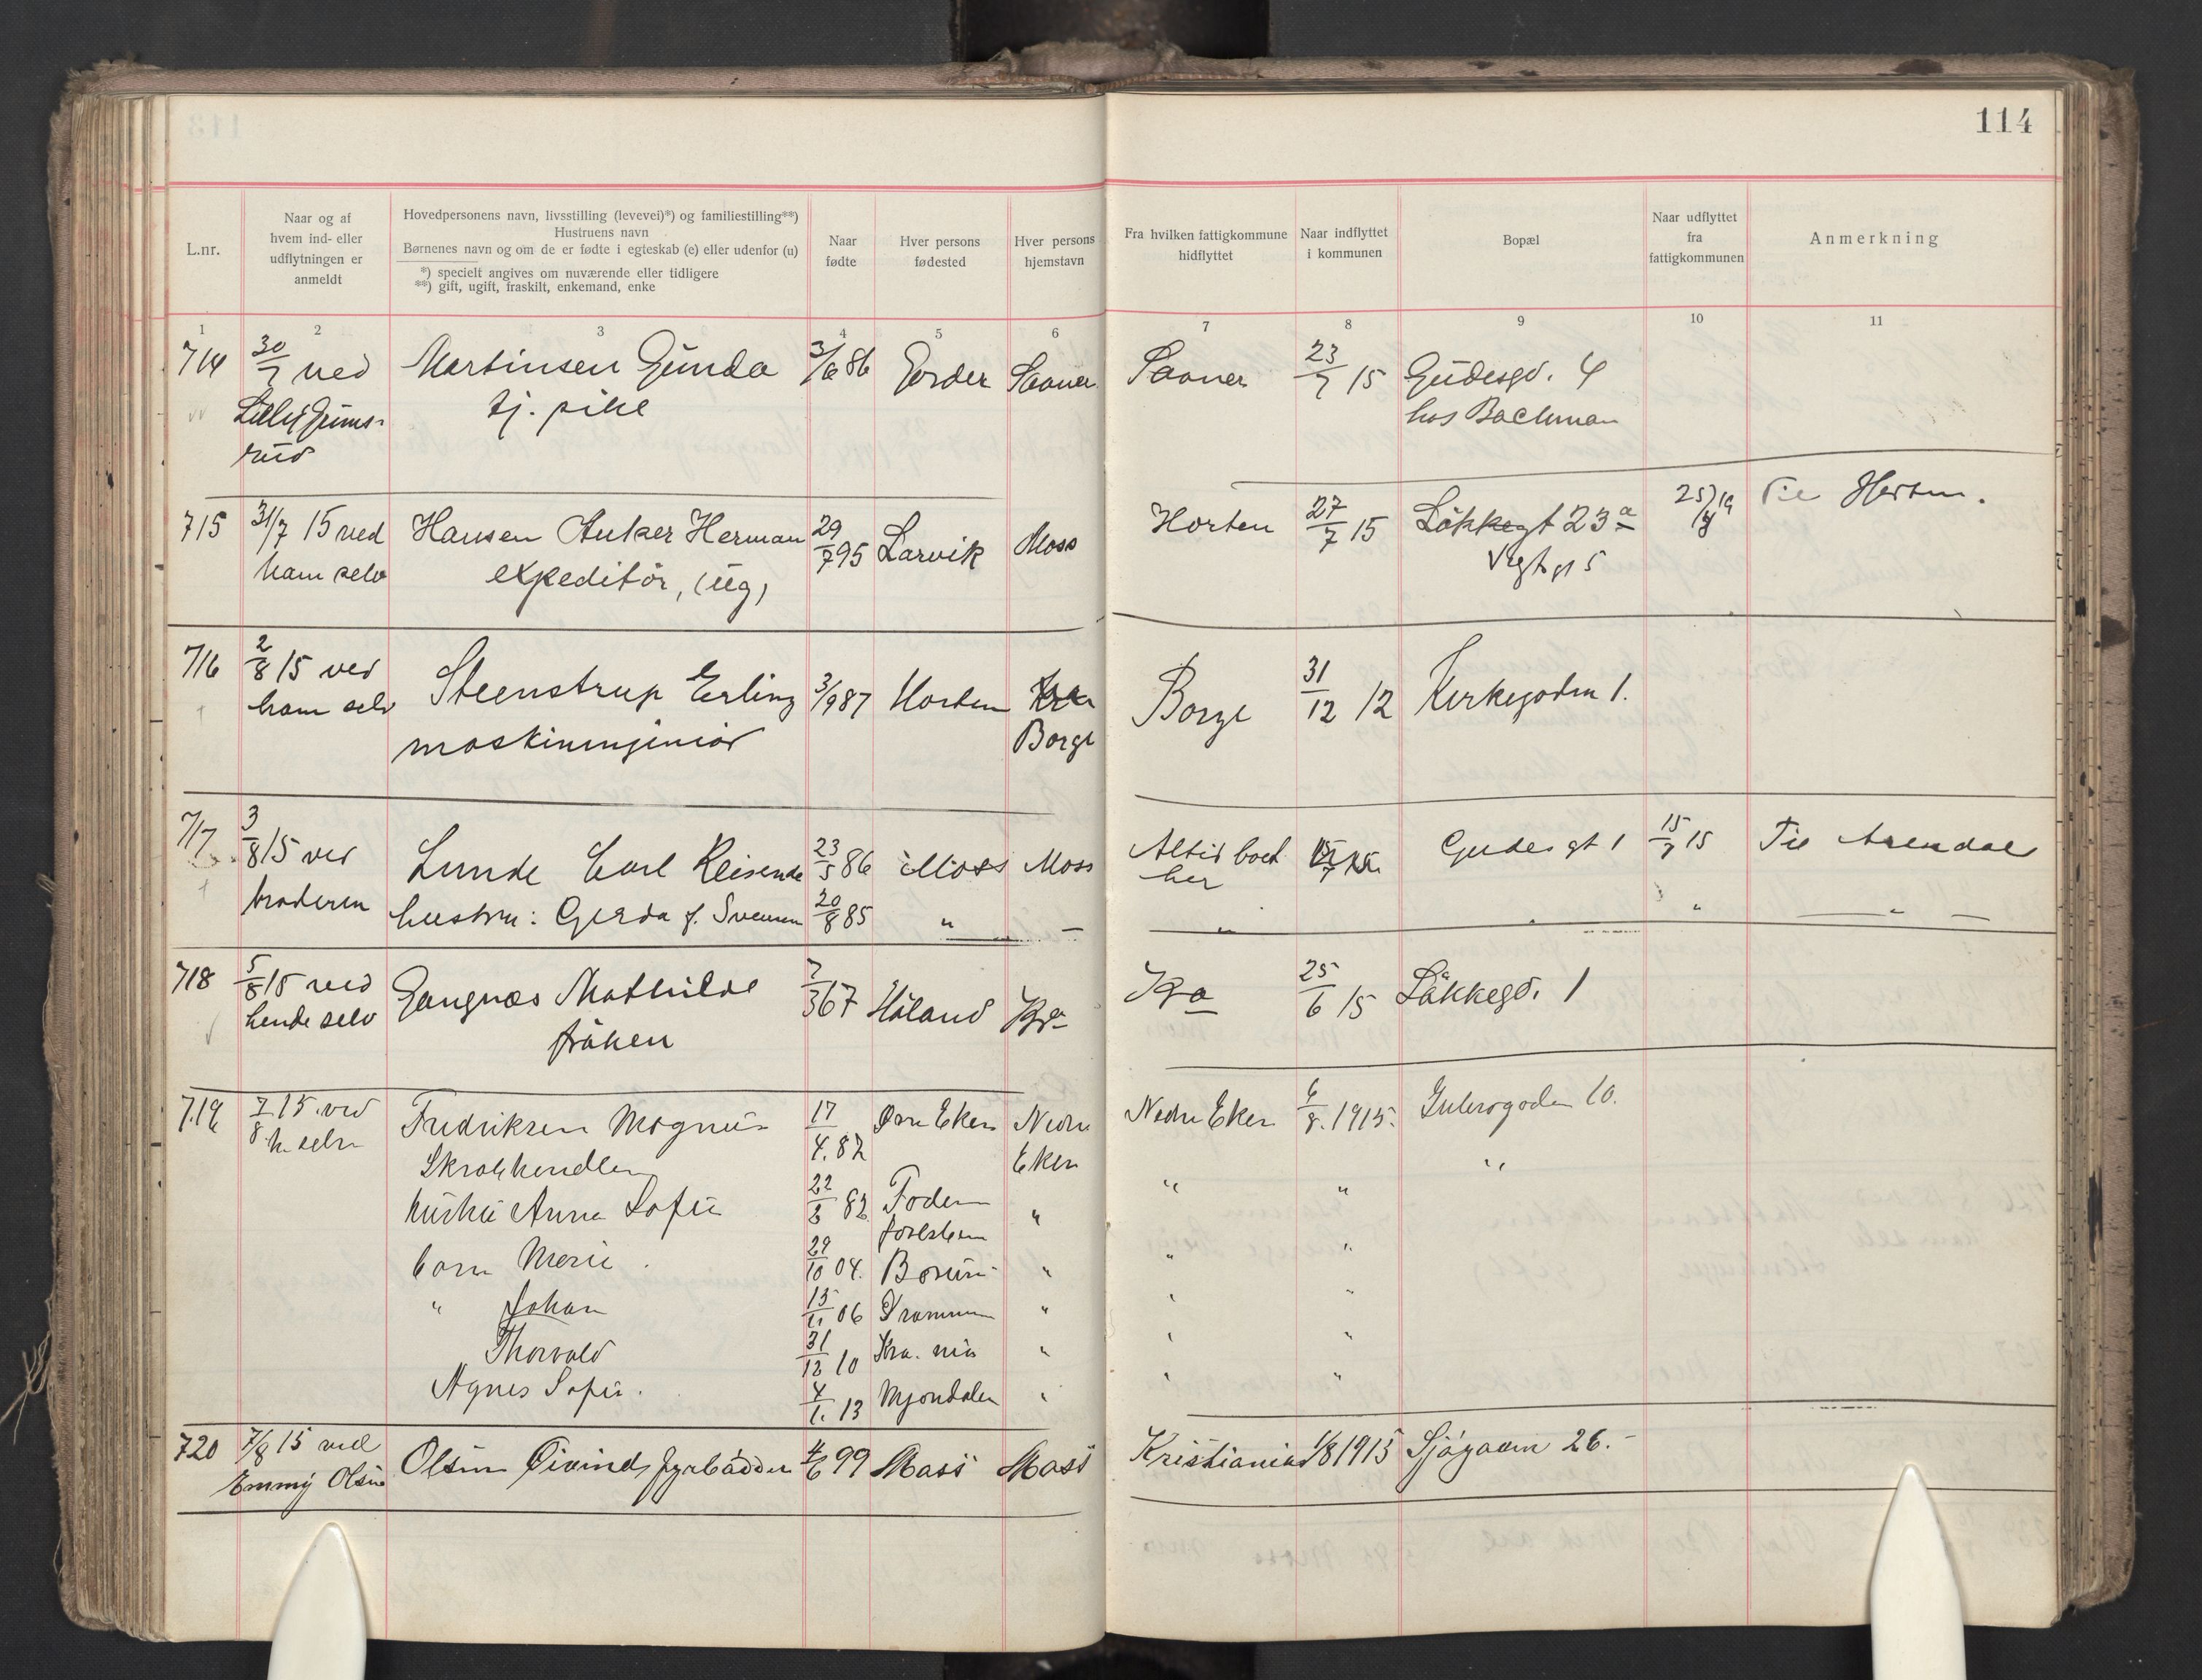 114
L.nr.
Naar og af
hvem ind- eller
udflytningen er
anmeldt
Hovedpersonens navn, livsstilling (levevei)*) og familiestilling**)
Hustruens navn
Børnenes navn og om de er fødte i egteskab (e) eller udenfor (u)
*) specielt angives om nuværende eller tidligere
**) gift, ugift, fraskilt, enkemand, enke
Naar
fødte
Hver persons
fødested
Hver persons
hjemstavn
Fra hvilken fattigkommune
hidflyttet
Naar indflyttet
i kommunen
Bopæl
Naar udflyttet
fra
fattigkommunen
Anmerkning
1 2 3 4 5 6 7 8 9 10 11
714 30/7 ved Martinsen Gunda 3/6 86 Saaner Saaner 23/7 15 Gudesgd. 4
tj. pike hos Bachman
715 31/7 15 ved Hansen Anker Herman 29/7 95 Larvik Moss Horten 27/7 15 Løkkegt 23a Til Horten.
ham selv expeditør, (ug) Vegtgt 5
716 2/8 15 ved Steenstrup Erling 3/9 87 Horten Borge 31/12 12 Kirkegaden 1.
ham selv maskiningeniør Borge
717 3/8 15 ved Lunde Carl Reisende 23/5 86 Moss Moss Altid boet Gudesgt 1 15/7 15 Til Arendal
her
broderen hustru: Gerda f. Svensen 20/8 85 " "
718 5/8 15 ved Gangnæs Mathilde 7/3 67 Høland Kra Kra 25/6 15 Løkkegd. 1
hende selv frøken
719 7/8 15 ved Fredriksen Magnus 17/4. 82 Øvre Eker Nedre Nedre Eker 6/8. 1915. 10.
h. selv Skraphandler Eker
hustru Anna Sofie 22/8 82 " " "
barn Marie 29/10 04. " " "
" Johan 15/11 06 Drammen " " "
Thorvald 31/12 10 Kra. nia " " "
Agnes Sofie. 4/1. 13 Mjøndalen " " "
720 7/8 15 ved Olsen Øivind fyrbødder 4/6 99 Moss Moss Kristiania 1/8 1915 Sjøgaden 26.
Emmy Olsen